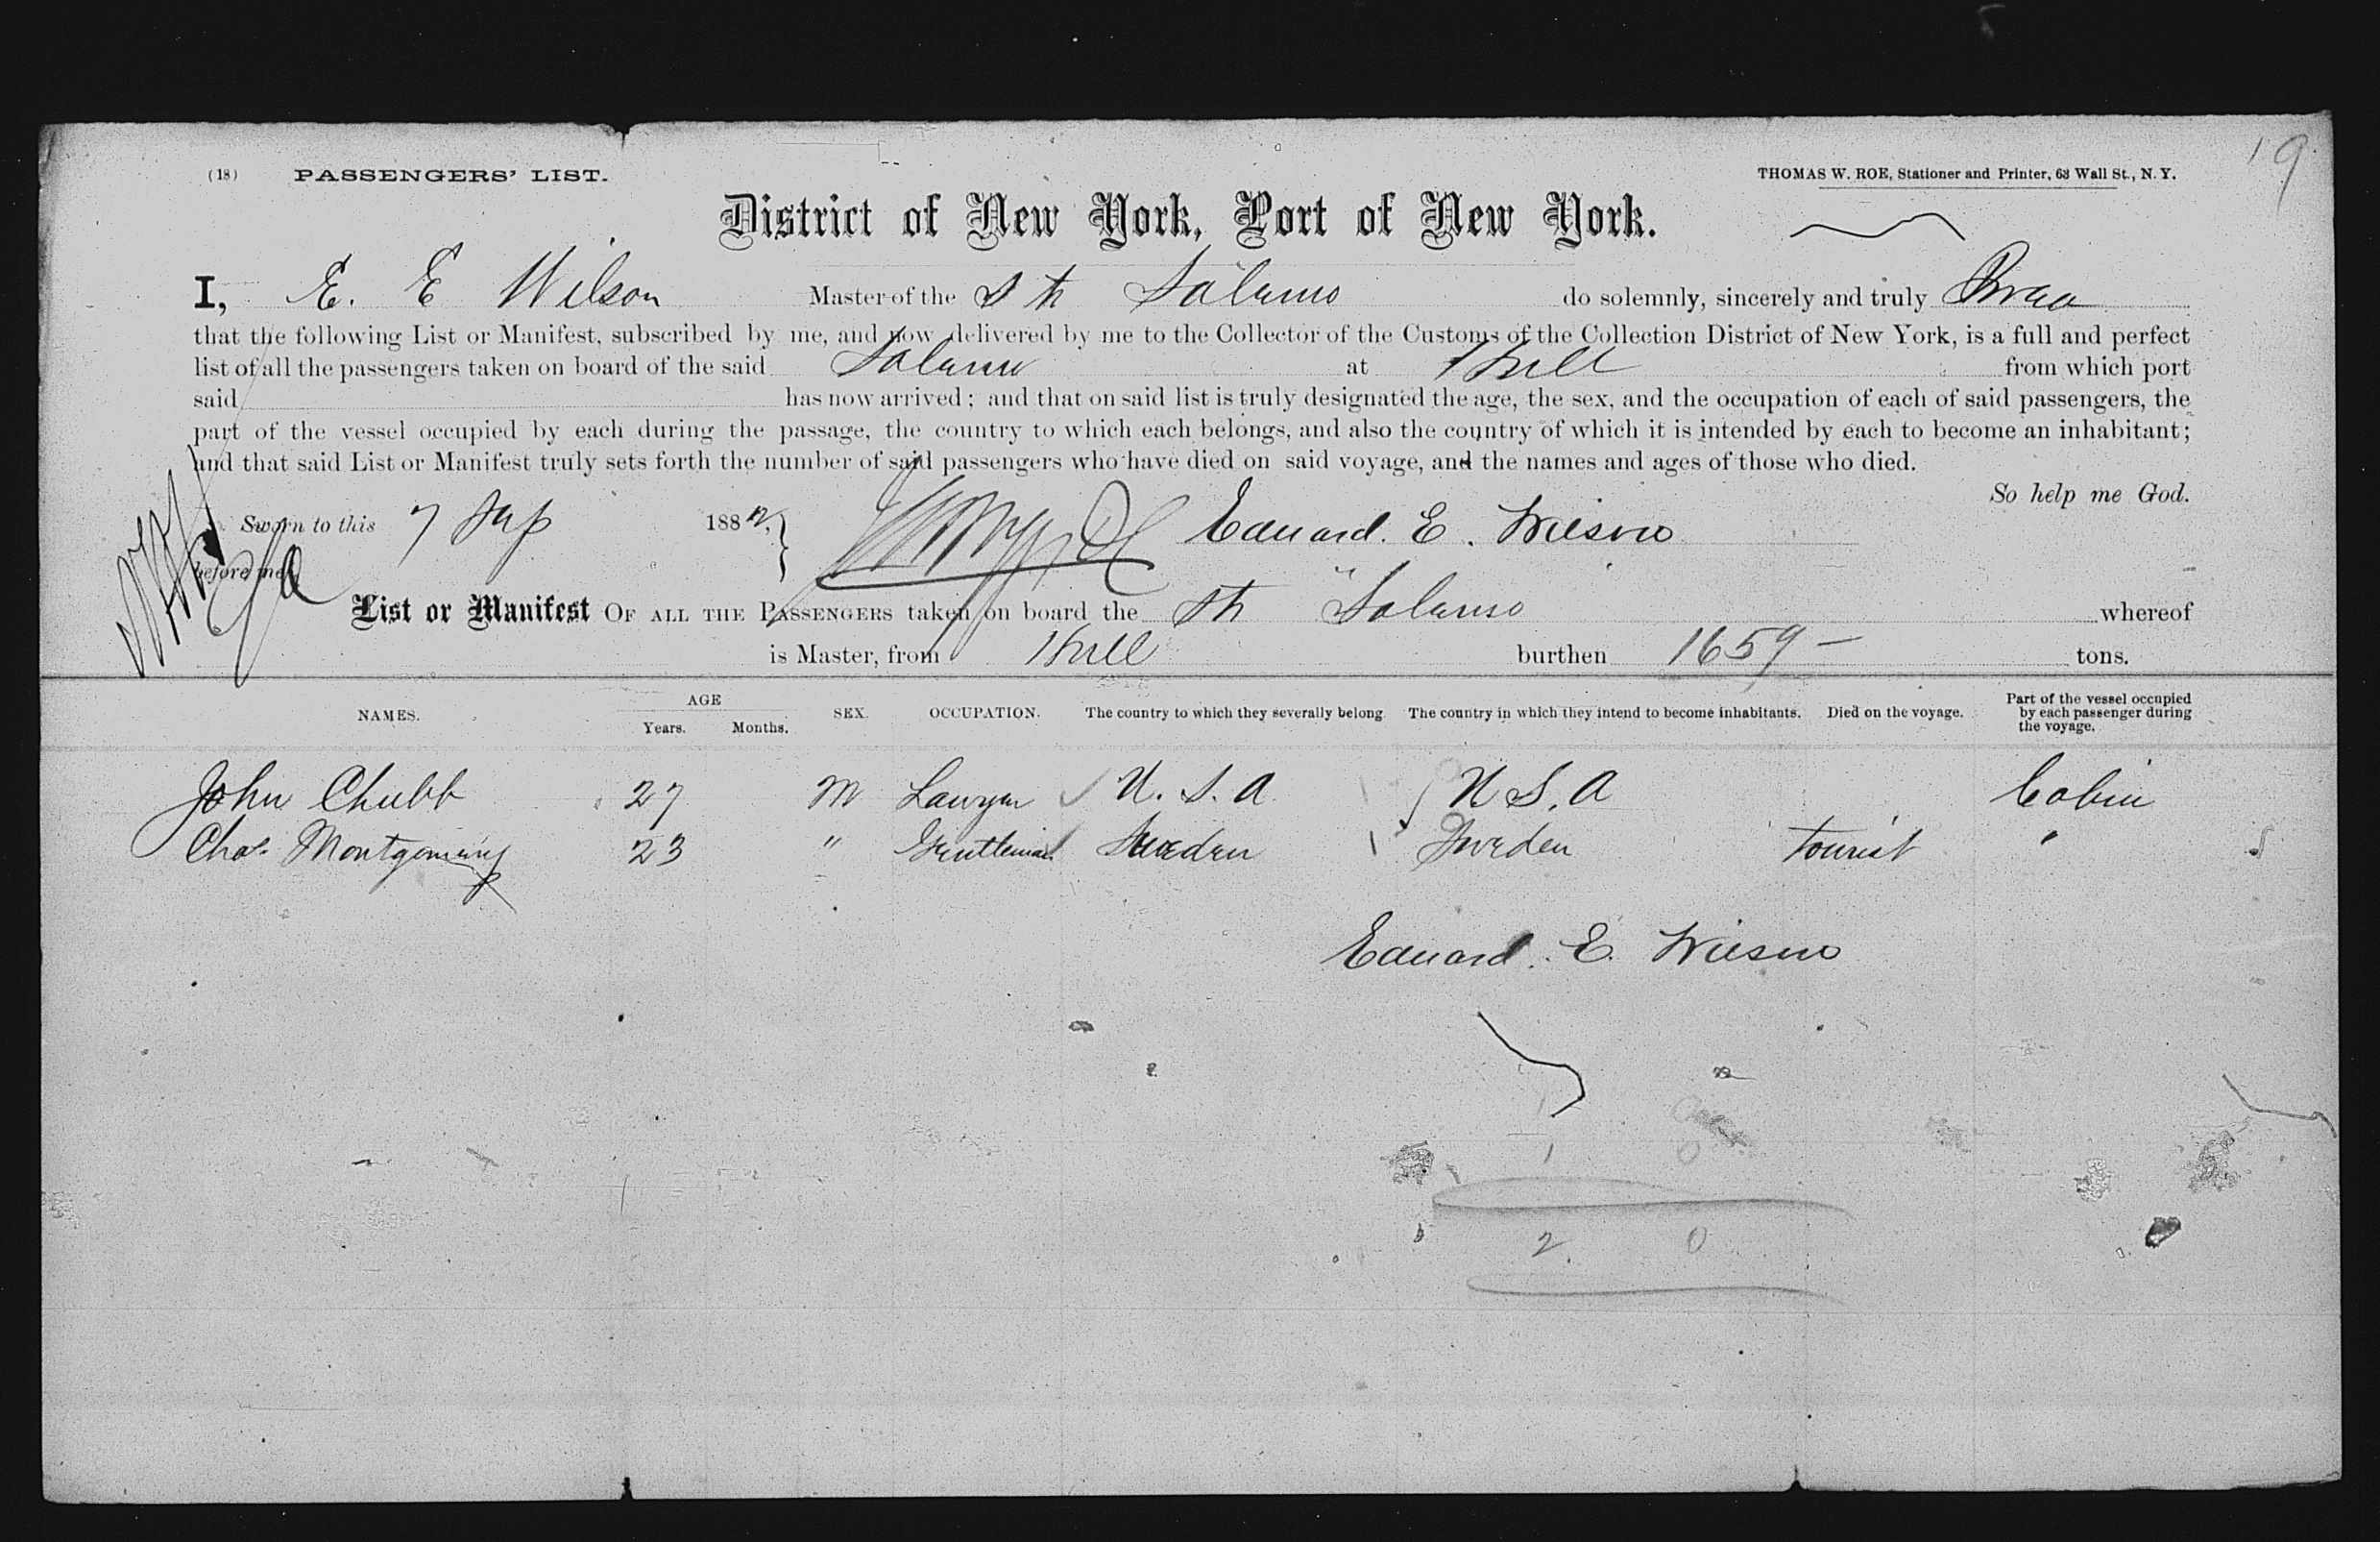 19
(18) PASSENGERS' LIST. THOMAS W. ROE, Stationer and Printer, 63 Wall St., N. Y.
District of New York, Port of New York.
I, E. E Wilson Master of the Str Salerno do solemnly, sincerely and truly
that the following List or Manifest, subscribed by me, and now delivered by me to the Collector of the Customs of the Collection District of New York, is a full and perfect
list of all the passengers taken on board of the said Salerno at Hull from which port
said has now arrived; and that on said list is truly designated the age, the sex, and the occupation of each of said passengers, the
part of the vessel occupied by each during the passage, the country to which each belongs, and also the country of which it is intended by each to become an inhabitant;
and that said List or Manifest truly sets forth the number of said passengers who have died on said voyage, and the names and ages of those who died.
So help me God.
Sworn to this 7 Sep 1882, Edward. E. Wilson
before me
List or Manifest OF ALL THE PASSENGERS taken on board the Str "Salerno whereof
is Master, from Hull burthen 1659 - tons.
NAMES. AGE Years. Months. SEX. OCCUPATION. The country to which they severally belong. The country in which they intend to become inhabitants. Died on the voyage. Part of the vessel occupied by each passenger during the voyage.
John Chubb 27 M Lawyer U. S. A U S. A Cabin
Chas. Montgomery 23 " Gentleman Sweden 1 Sweden tourist "
Edward. E. Wilson
1 0
2 0